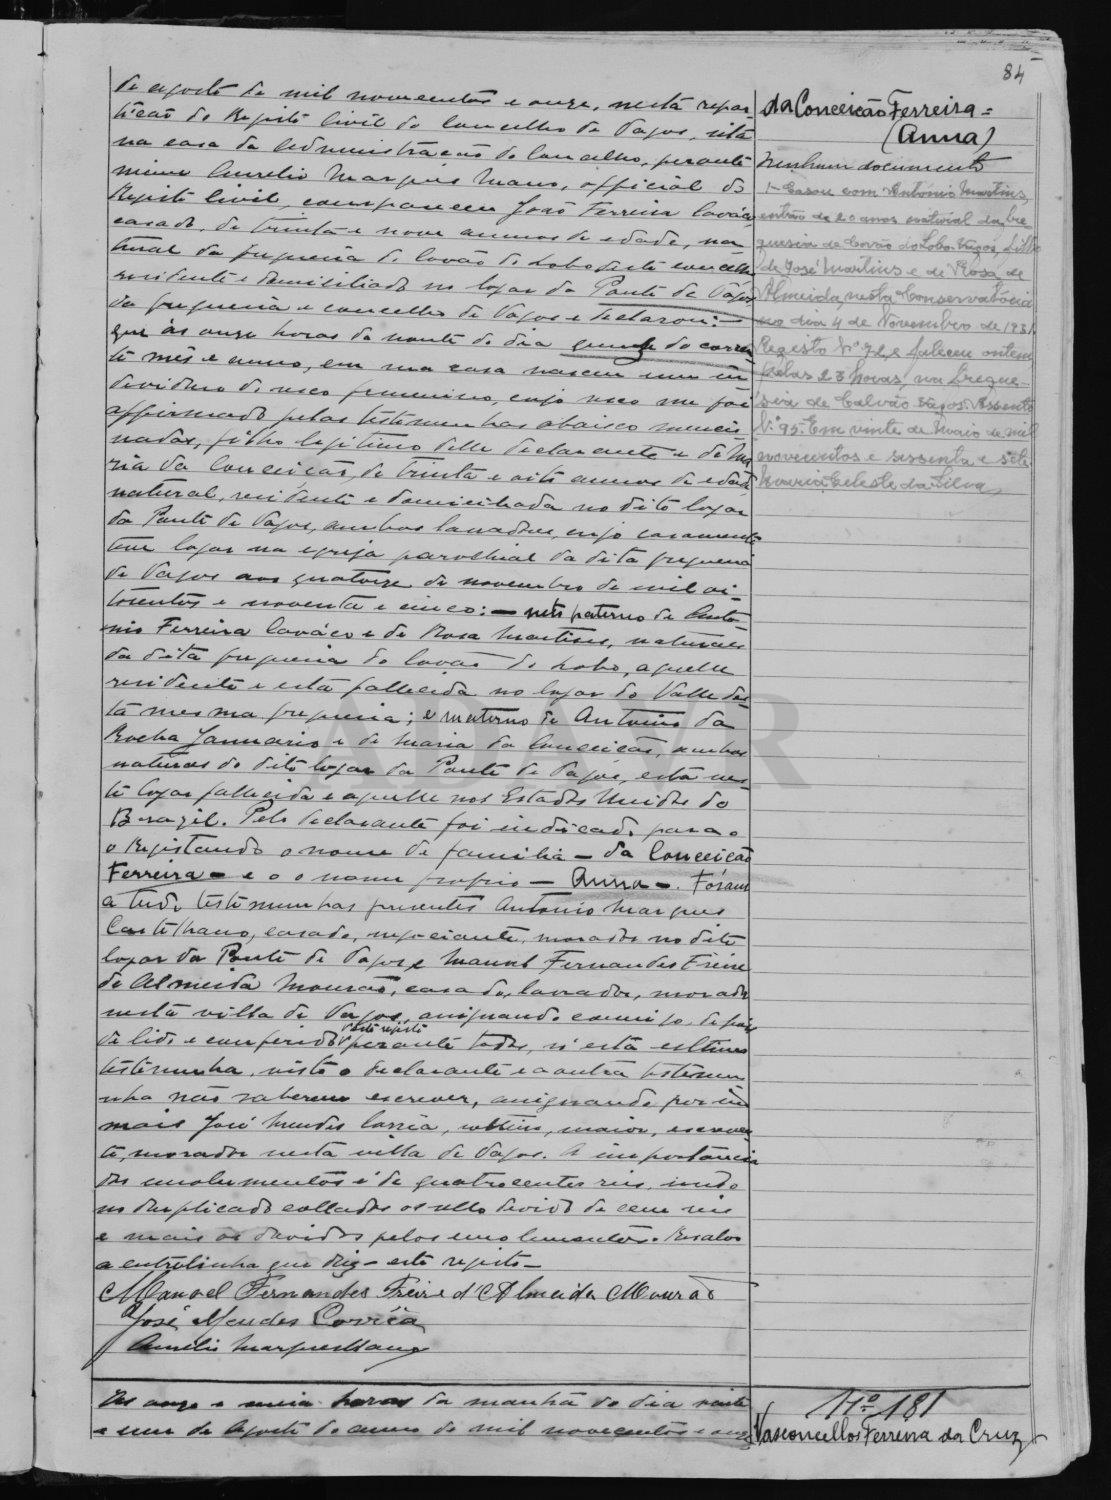 84
de agosto de mil novecentos e onze, nesta repar-
tição do Registo Civil do Concelho de Vagos, sita
na casa da Administração do Concelho, perante
mim Aurelio Marques Mano, official do
Registo Civil, compareceu João Ferreira Covaco
casado, de trinta e nove annos de edade, na-
tural da freguesia do Covão do Lobo deste concelho
residente e domiciliado no logar da Ponte de Vagos
da freguesia e concelho de Vagos e declarou: —
que ás onze horas da noute do dia quinze do corren-
te mês e anno, em sua casa nasceu um in-
dividuo do sexo feminino, cujo sexo me foi
affirmado pelas testemunhas abaixo mencio-
nadas, filho legitimo delle declarante e de Ma-
ria da Conceição, de trinta e oito annos de edade
natural, residente e domiciliada no dito logar
da Ponte de Vagos, ambos lavradores, cujo casamento
teve logar na egreja parochial da dita freguesia
de Vagos aos quatorze de novembro de mil oi-
tocentos e noventa e cinco: — neto paterno de Anto-
nio Ferreira Covaco e de Rosa Martins, naturaes
da dita freguesia do Covão do Lobo, aquelle
residente e esta fallecida no logar do Valle des-
ta mesma freguesia; e materno de Antonio da
Rocha Januario e de Maria da Conceição, ambos
naturaes do dito logar da Ponte de Vagos, esta nes-
te logar fallecida e aquelle nos Estados Unidos do
Brazil. Pelo declarante foi indicado para o
o Registando o nome de familia — da Conceição
Ferreira — e o o nome proprio — Anna —. Foram
a tudo testemunhas presentes Antonio Marques
Castelhano, casado, negociante, morador no dito
logar da Ponte de Vagos e Manoel Fernandes Freire
de Almeida Mourão, casado, lavrador, morador
nesta villa de Vagos, assignando commigo, depois
este registo
de lido e conferido perante todos, só esta ultima
testemunha, visto o declarante e a outra testemu-
nha não saberem escrever, assignando por im
mais José Mendes Corrêa, solteiro, maior, escreven-
te, morador nesta villa de Vagos. A importancia
dos emolumentos é de quatrocentos reis, sendo
no duplicado collados o sello devido de cem reis
e mais os devidos pelos emolumentos. Resalvo
a entrelinha que diz — este registo —
Manoel Fernandes Freire d'Almeida Mourão
José Mendes Corrêa
Aurelio Marques Mano
Ás onze e meia horas da manhã do dia vinte
e um de Agosto do anno de mil novecentos e onze
da Conceição Ferreira =
(Anna)
Nenhum documento
1- Casou com António Martins,
então de 20 anos natural da fre-
guesia de Covão do Lobo-Vagos, filho
de José Martins e de Rosa de
Almeida, nesta Conservatória
no dia 4 de Novembro de 1931.
Registo Nº 72, e faleceu ontem
pelas 23 horas, na fregue-
sia de Calvão-Vagos. Assento
Nº 95. Em vinte de Maio de mil
novecentos e sessenta e sete
Maria Celeste da Silva
Nº 181
Vasconcellos Ferreira da Cruz
ADAVR